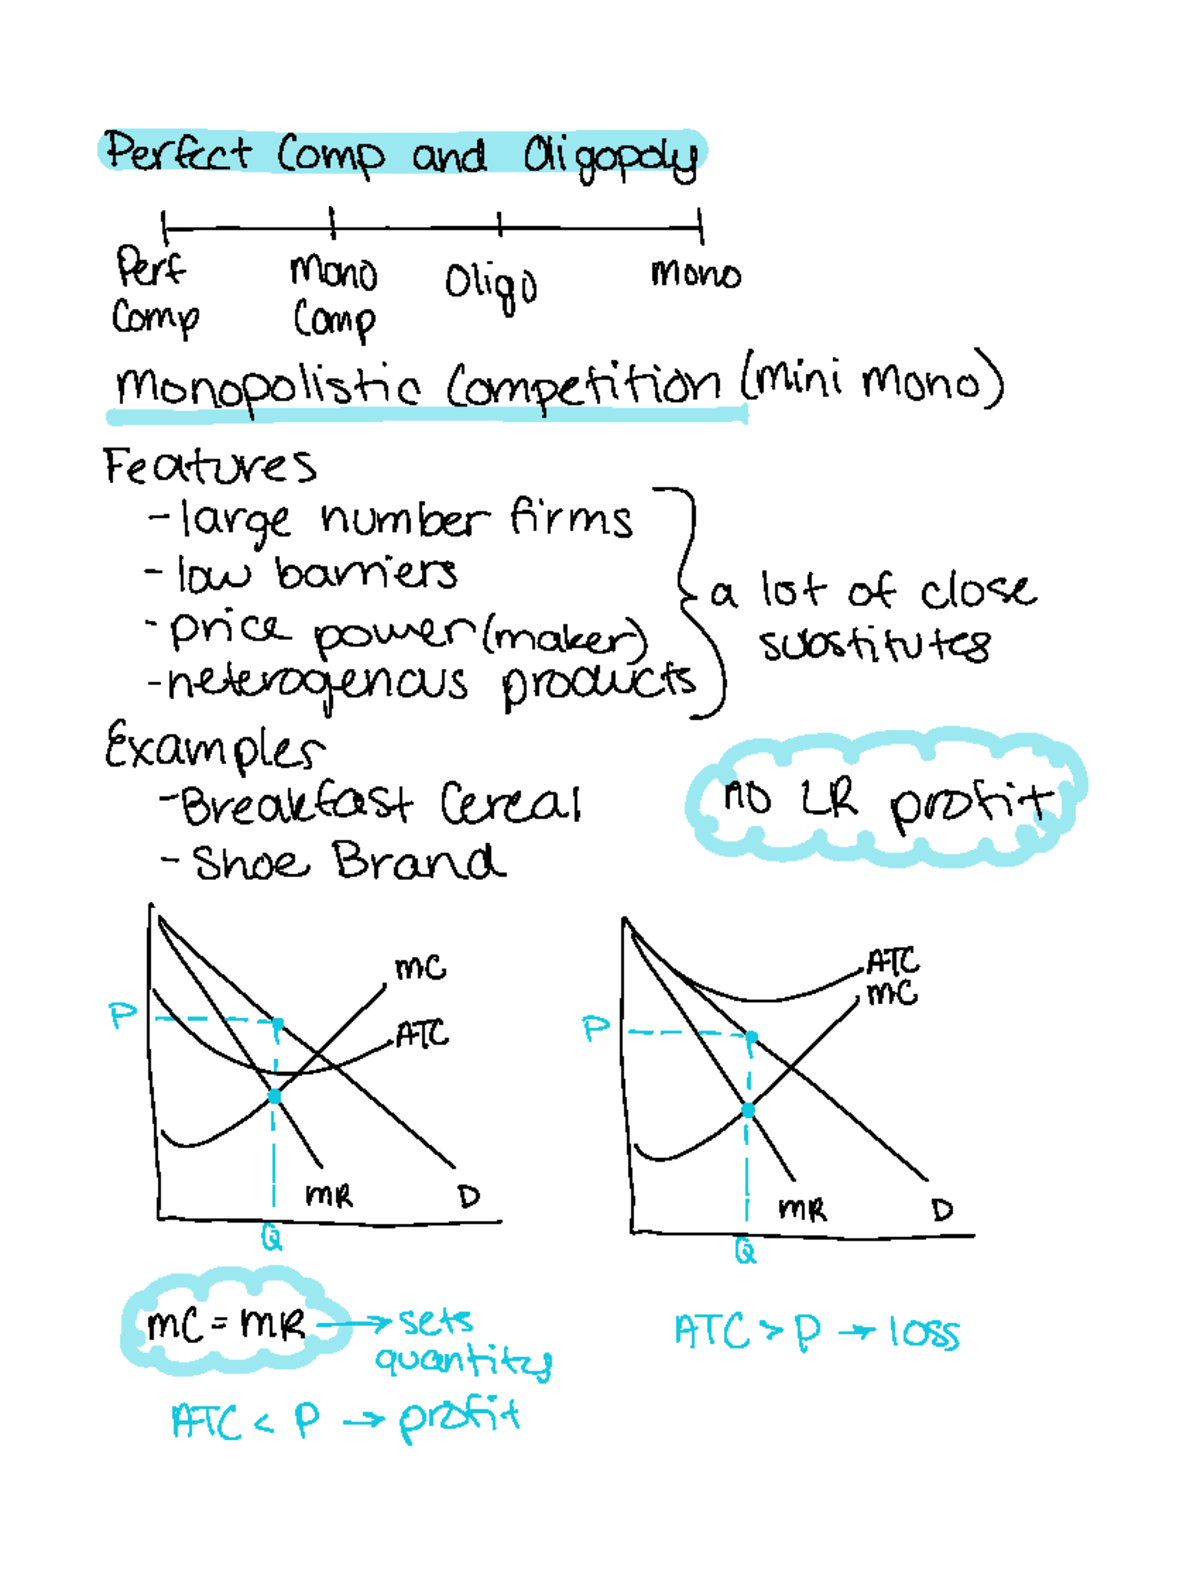 Perfect Comp and Oligopoly
Perf Comp
Mono Comp
Oligo
Mono
Monopolistic Competition (mini mono)
Features
- large number firms
- low barriers
- price power (maker)
- heterogenous products
a lot of close
substitutes
Examples
- Breakfast Cereal
- Shoe Brand
no LR profit
MC
ATC
P
MR
D
Q
ATC
MC
P
MR
D
Q
MC = MR → sets
quantity
ATC < P → profit
ATC > P → loss